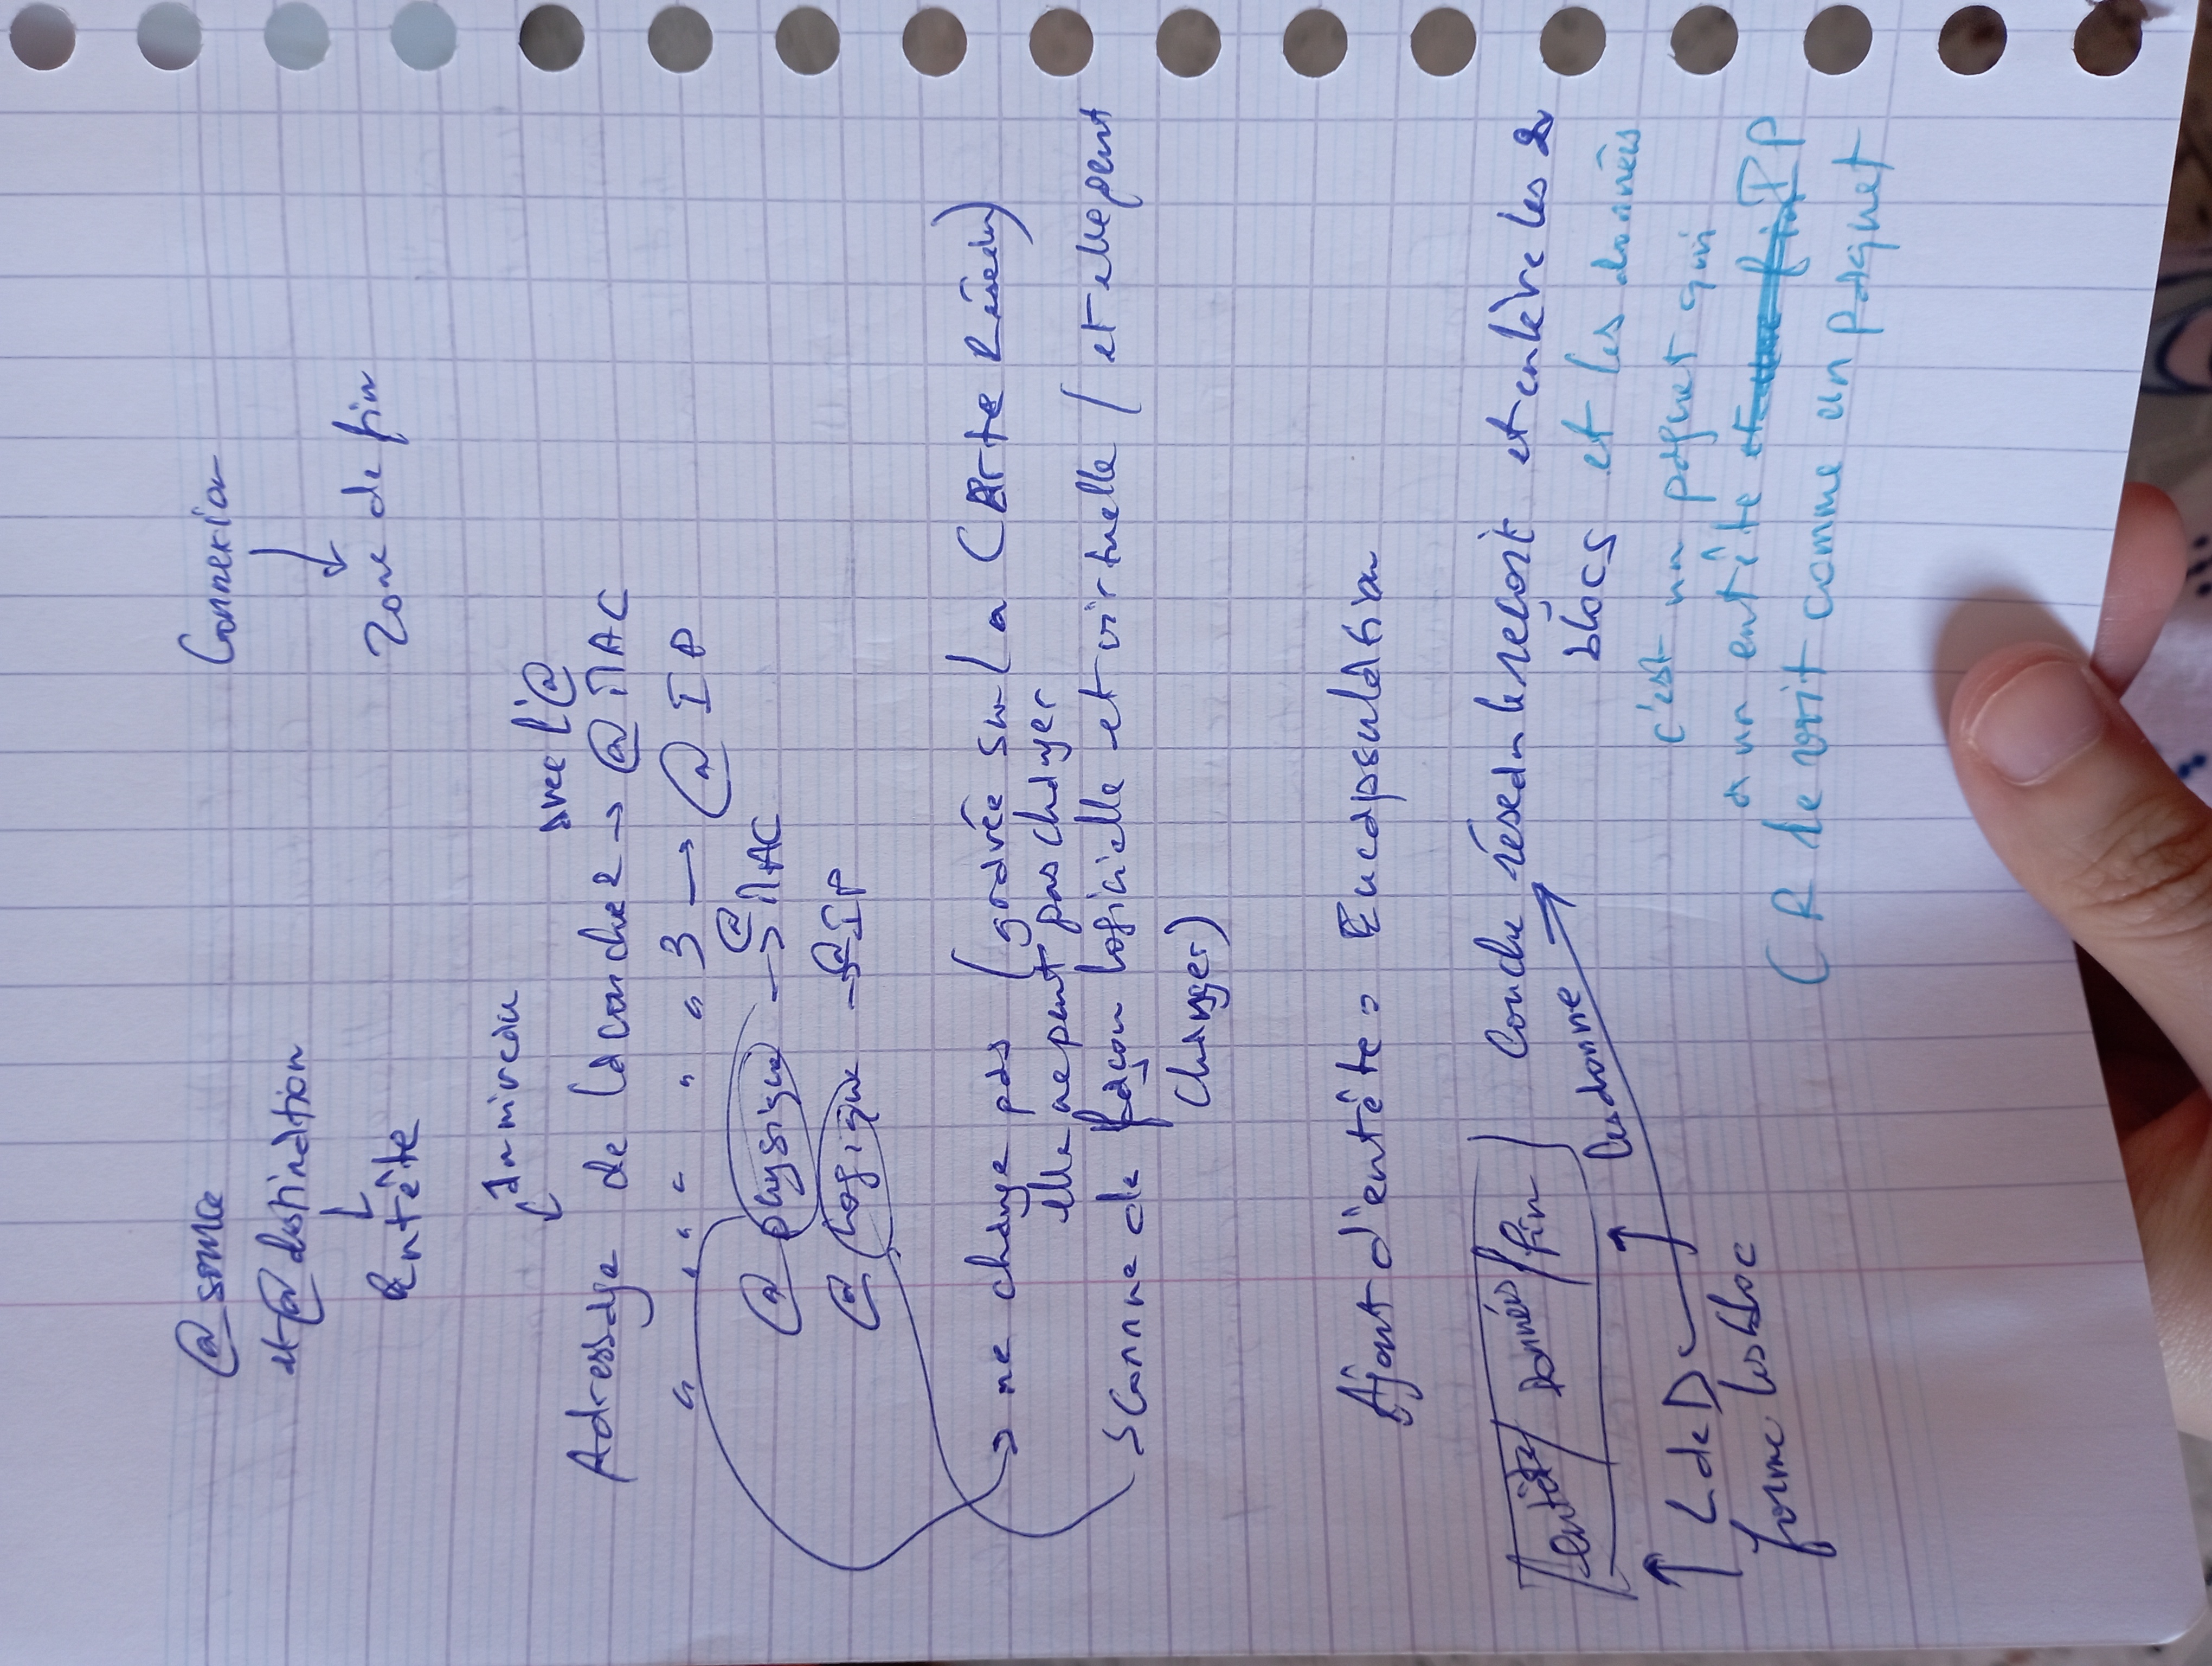 @ source
et @ destination
Entête
Connexion
Zone de fin
Au niveau
avec l'@
Adressage de la couche 2 → @ MAC
" " " " " " 3 → @ IP
@ physique → @ MAC
@ logique → @ IP
→ ne change pas (gravée sur la Carte Réseau)
elle ne peut pas changer
→ Connue de façon logicielle et virtuelle (et elle peut
changer)
Ajout d'entête = Encapsulation
entête / Données / fin
L de D
forme les bloc
les donne
Couche réseau le reçoit et enlève les 2
blocs et les données
c'est un paquet qui
a un entête IP
CR le voit comme un paquet